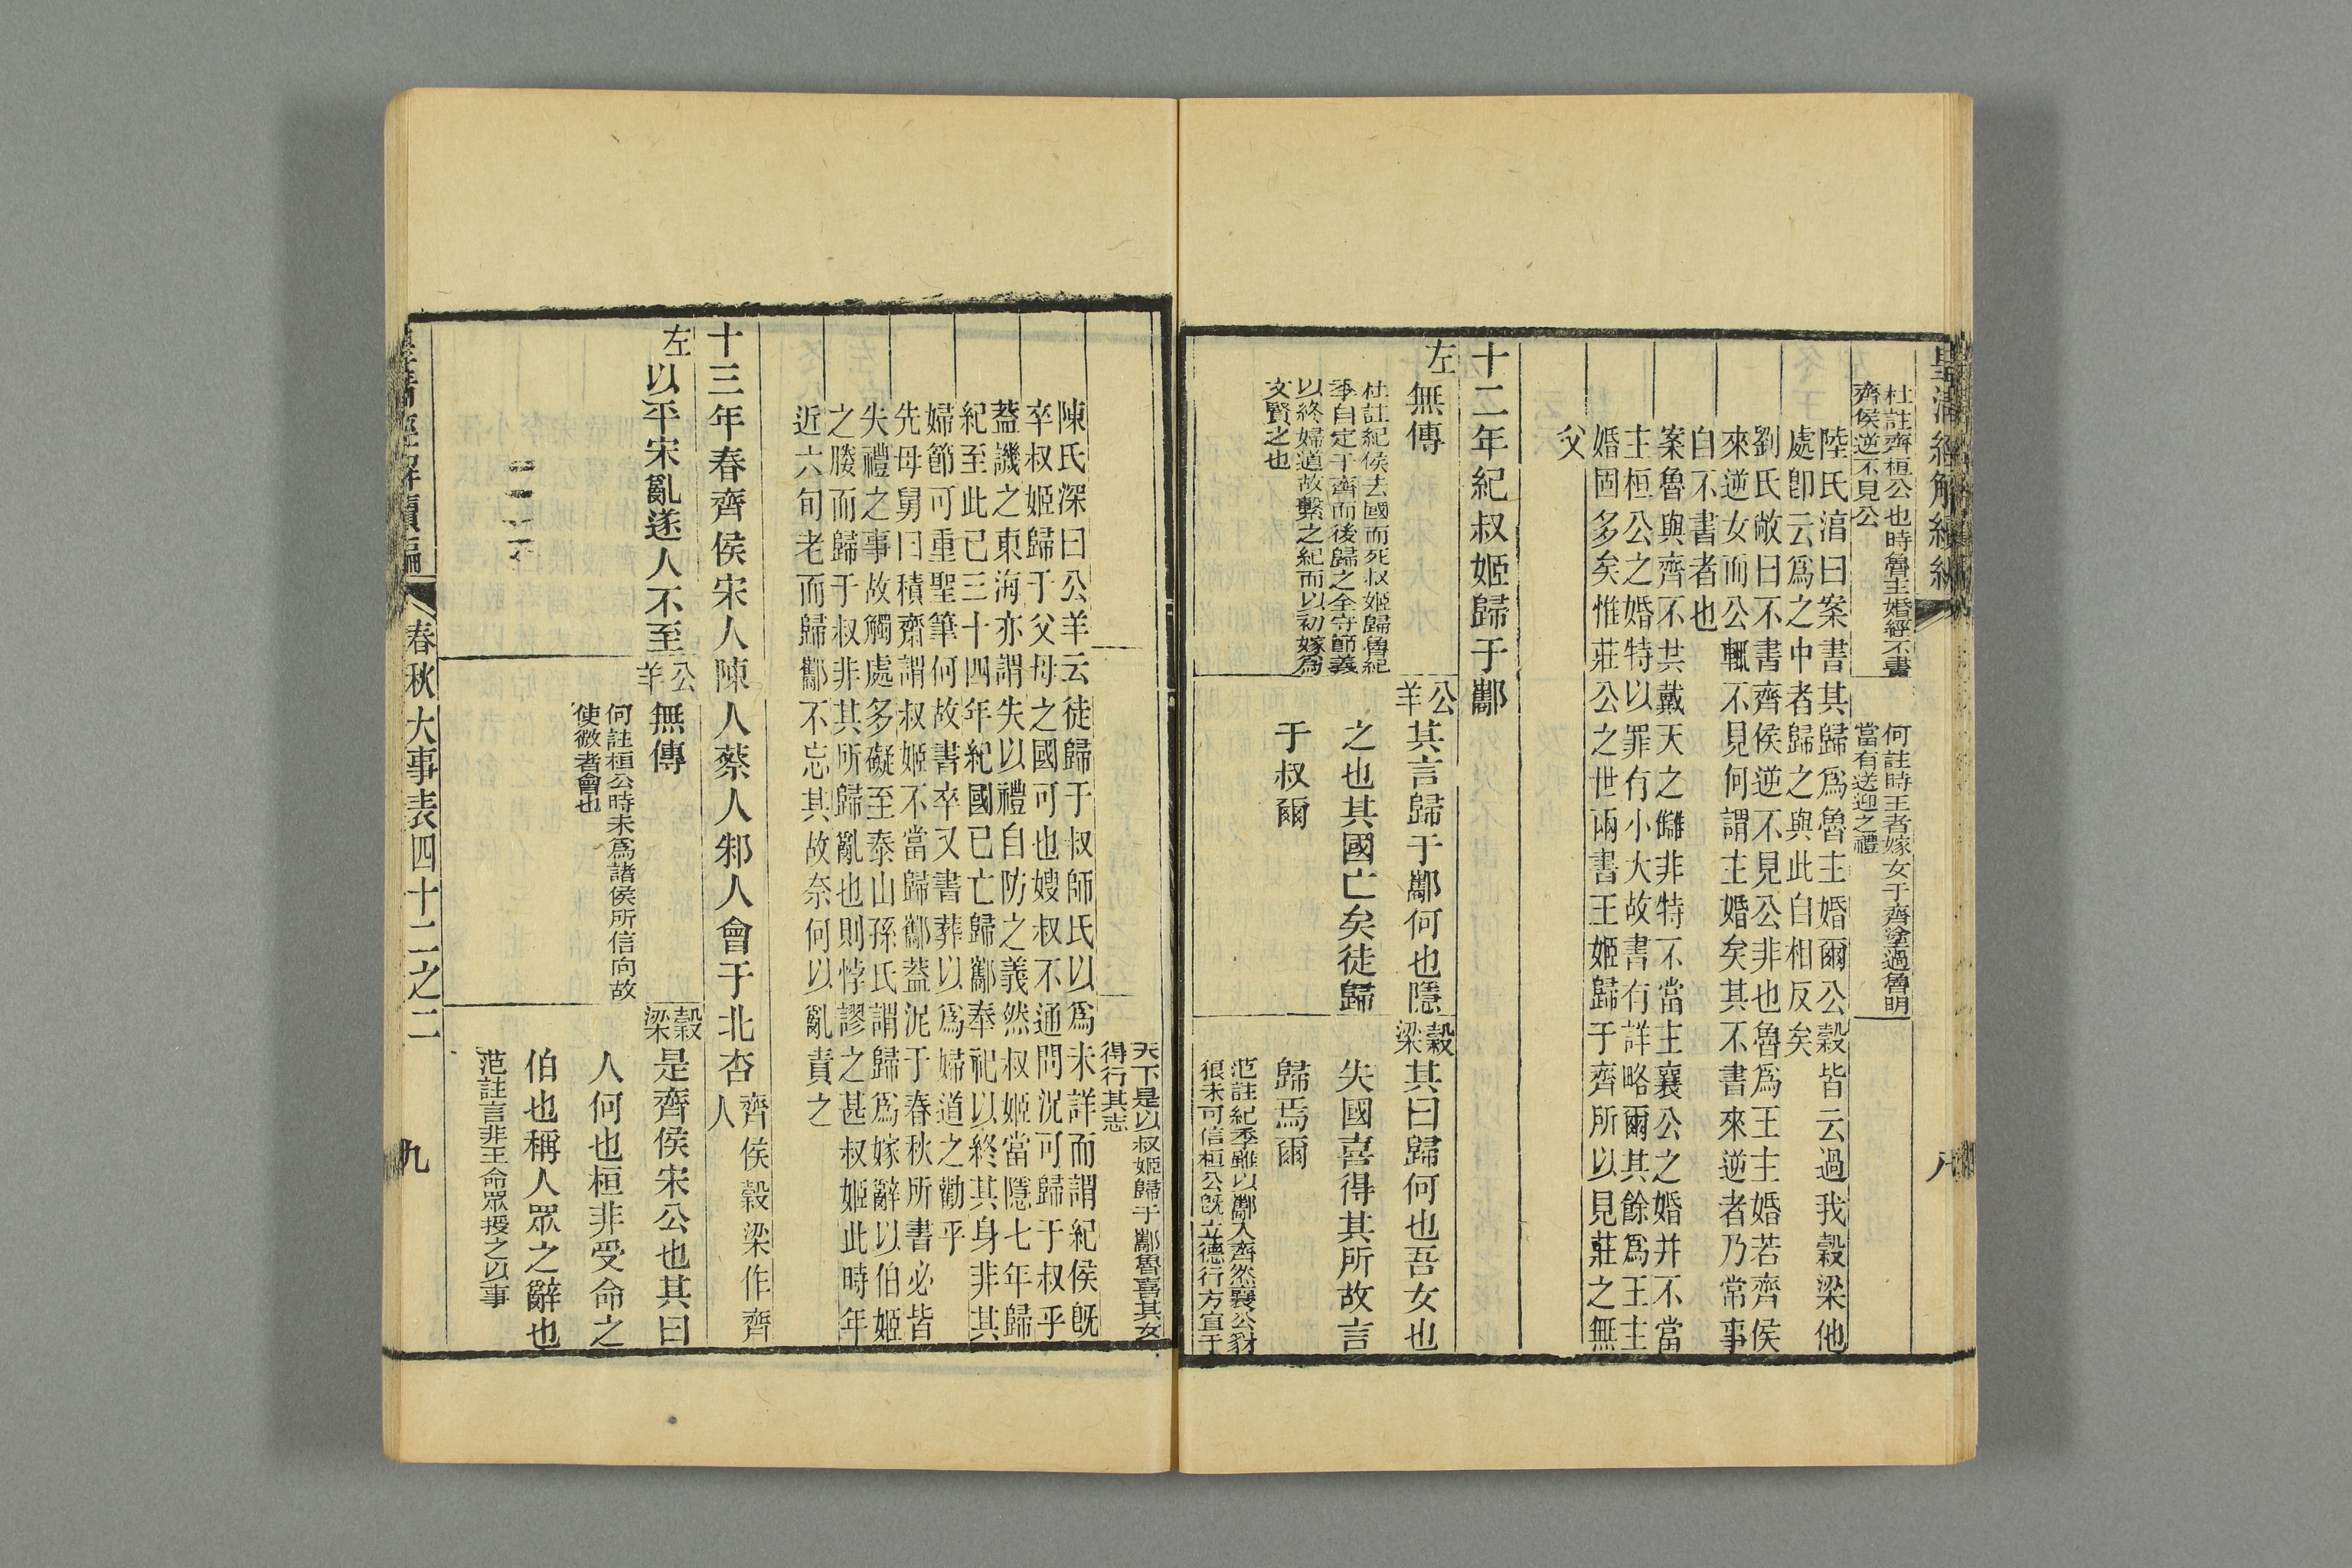 皇清經解續編
八
杜註齊桓公也時魯主婚經不書
齊侯逆不見公
何註時王者嫁女于齊塗過魯明
當有送迎之禮
陸氏淳曰案書其歸爲魯主婚爾公穀皆云過我穀梁他
處卽云爲之中者歸之與此自相反矣
劉氏敞曰不書齊侯逆不見公非也魯爲王主婚若齊侯
來逆女而公輒不見何謂主婚矣其不書來逆者乃常事
自不書者也
案魯與齊不共戴天之讎非特不當主襄公之婚并不當
主桓公之婚特以罪有小大故書有詳略爾其餘爲王主
婚固多矣惟莊公之世兩書王姬歸于齊所以見莊之無
父
十二年紀叔姬歸于酅
左
無傳
杜註紀侯去國而死叔姬歸魯紀
季自定于齊而後歸之全守節義
以終婦道故繫之紀而以初嫁爲
文賢之也
公羊
其言歸于酅何也隱
之也其國亡矣徒歸
于叔爾
穀梁
其曰歸何也吾女也
失國喜得其所故言
歸焉爾
范註紀季雖以酅入齊然襄公豺
狼未可信桓公旣立德行方宣于
天下是以叔姬歸于酅魯喜其女
得行其志
陳氏深曰公羊云徒歸于叔師氏以爲未詳而謂紀侯旣
卒叔姬歸于父母之國可也嫂叔不通問況可歸于叔乎
蓋譏之東海亦謂失以禮自防之義然叔姬當隱七年歸
紀至此已三十四年紀國已亡歸酅奉祀以終其身非其
婦節可重聖筆何故書卒又書葬以爲婦道之勸乎
先母舅曰積齋謂叔姬不當歸酅蓋泥于春秋所書必皆
失禮之事故觸處多礙至泰山孫氏謂歸爲嫁辭以伯姬
之媵而歸于叔非其所歸亂也則悖謬之甚叔姬此時年
近六旬老而歸酅不忘其故奈何以亂責之
十三年春齊侯宋人陳人蔡人邾人會于北杏
齊侯穀梁作齊
人
左
以平宋亂遂人不至
公羊
無傳
何註桓公時未爲諸侯所信向故
使微者會也
穀梁
是齊侯宋公也其曰
人何也桓非受命之
伯也稱人眾之辭也
范註言非王命眾授之以事
皇清經解續編
春秋大事表四十二之二
九